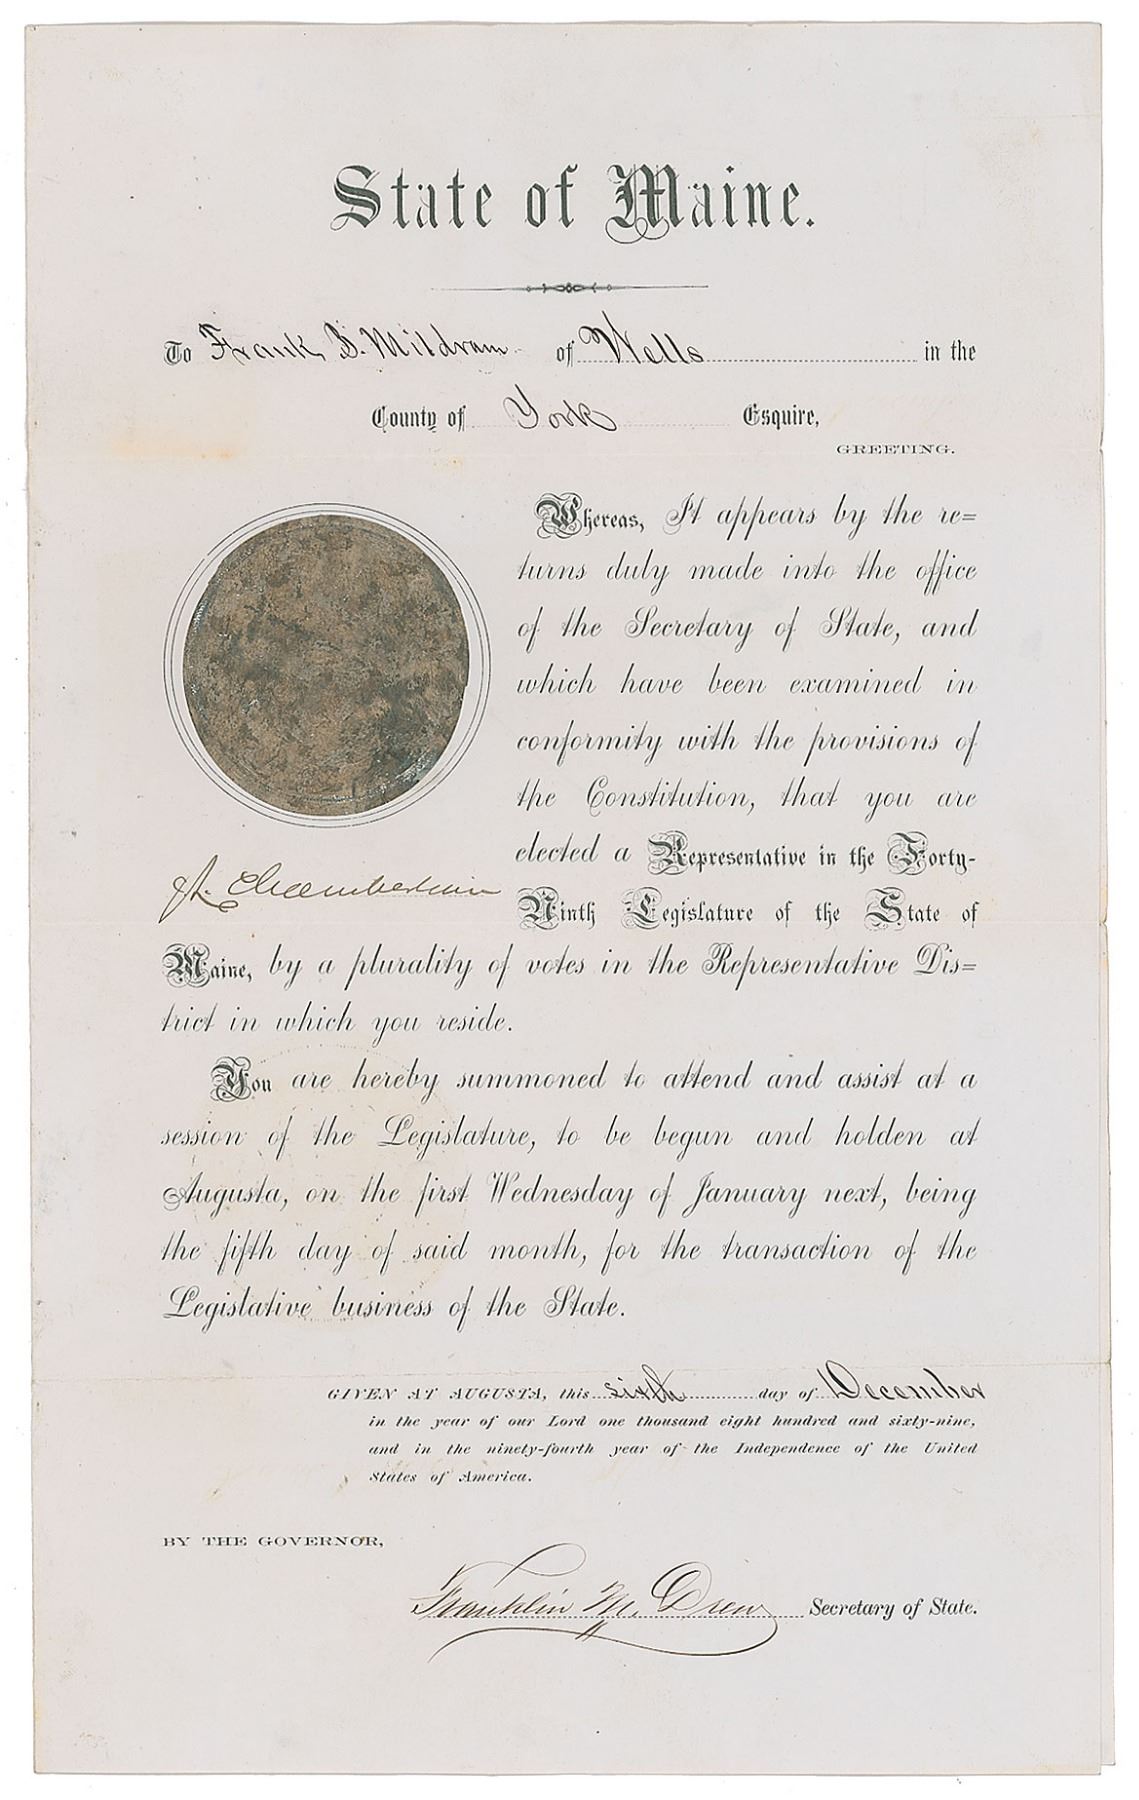 State of Maine.
To Frank B. Mildram of Wells in the
County of York Esquire,
GREETING.
Whereas, It appears by the re=
turns duly made into the office
of the Secretary of State, and
which have been examined in
conformity with the provisions of
the Constitution, that you are
elected a Representative in the Forty-
Ninth Legislature of the State of
Maine, by a plurality of votes in the Representative Dis=
trict in which you reside.
J L. Chamberlain
You are hereby summoned to attend and assist at a
session of the Legislature, to be begun and holden at
Augusta, on the first Wednesday of January next, being
the fifth day of said month, for the transaction of the
Legislative business of the State.
GIVEN AT AUGUSTA, this sixth day of December
in the year of our Lord one thousand eight hundred and sixty-nine,
and in the ninety-fourth year of the Independence of the United
States of America.
BY THE GOVERNOR,
Franklin M. Drew Secretary of State.